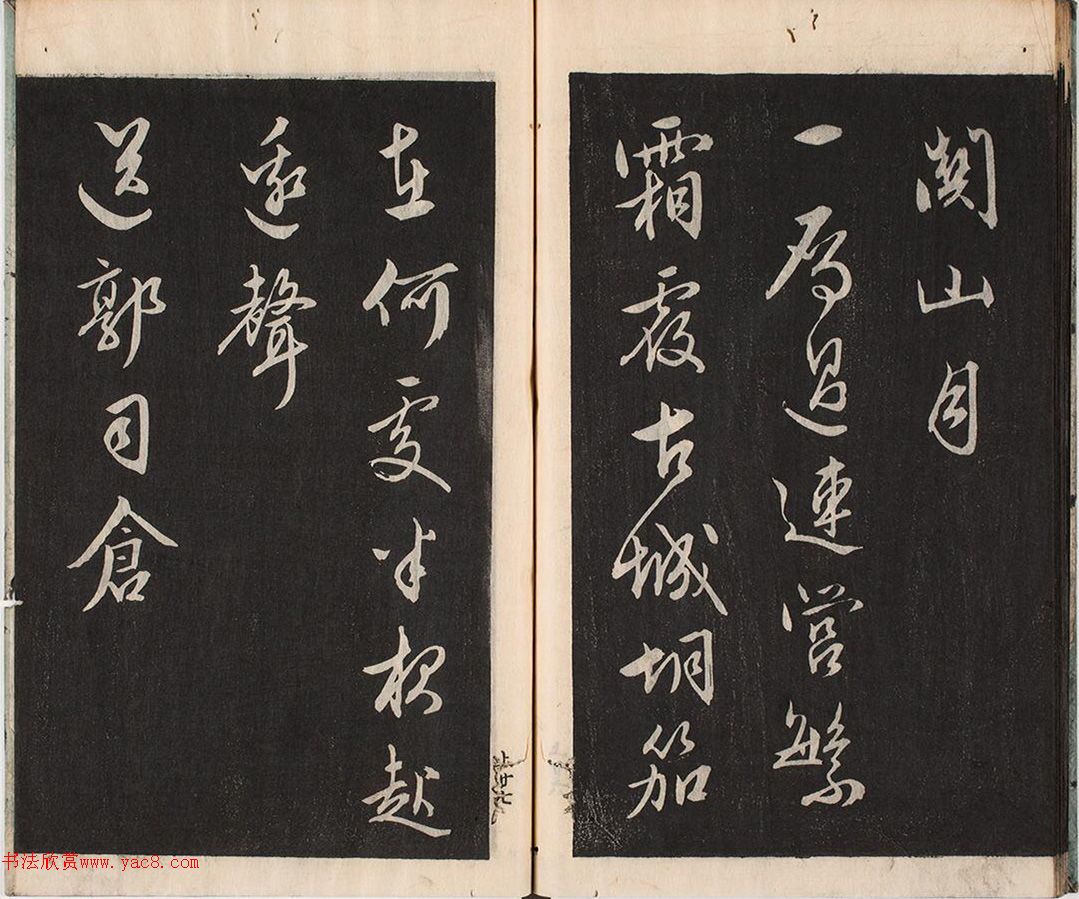 關山月
一雁過連營繁
霜覆古城胡笳
在何處半夜起
邊聲
送郭司倉
上廿七
书法欣赏www.yac8.com